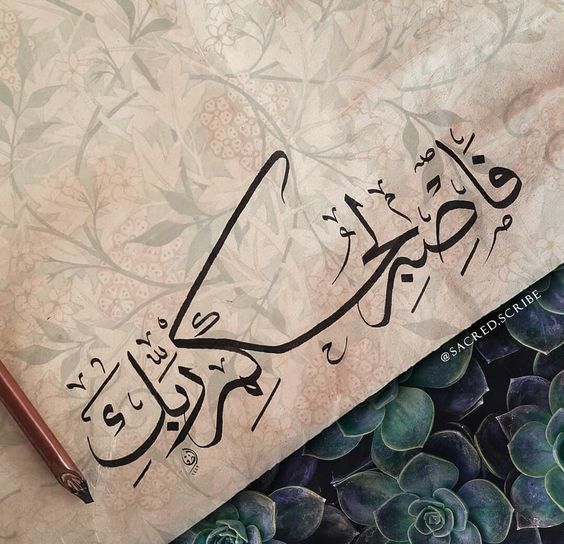 فَاصْبِرْ لِحُكْمِ رَبِّكَ
@SACRED.SCRIBE